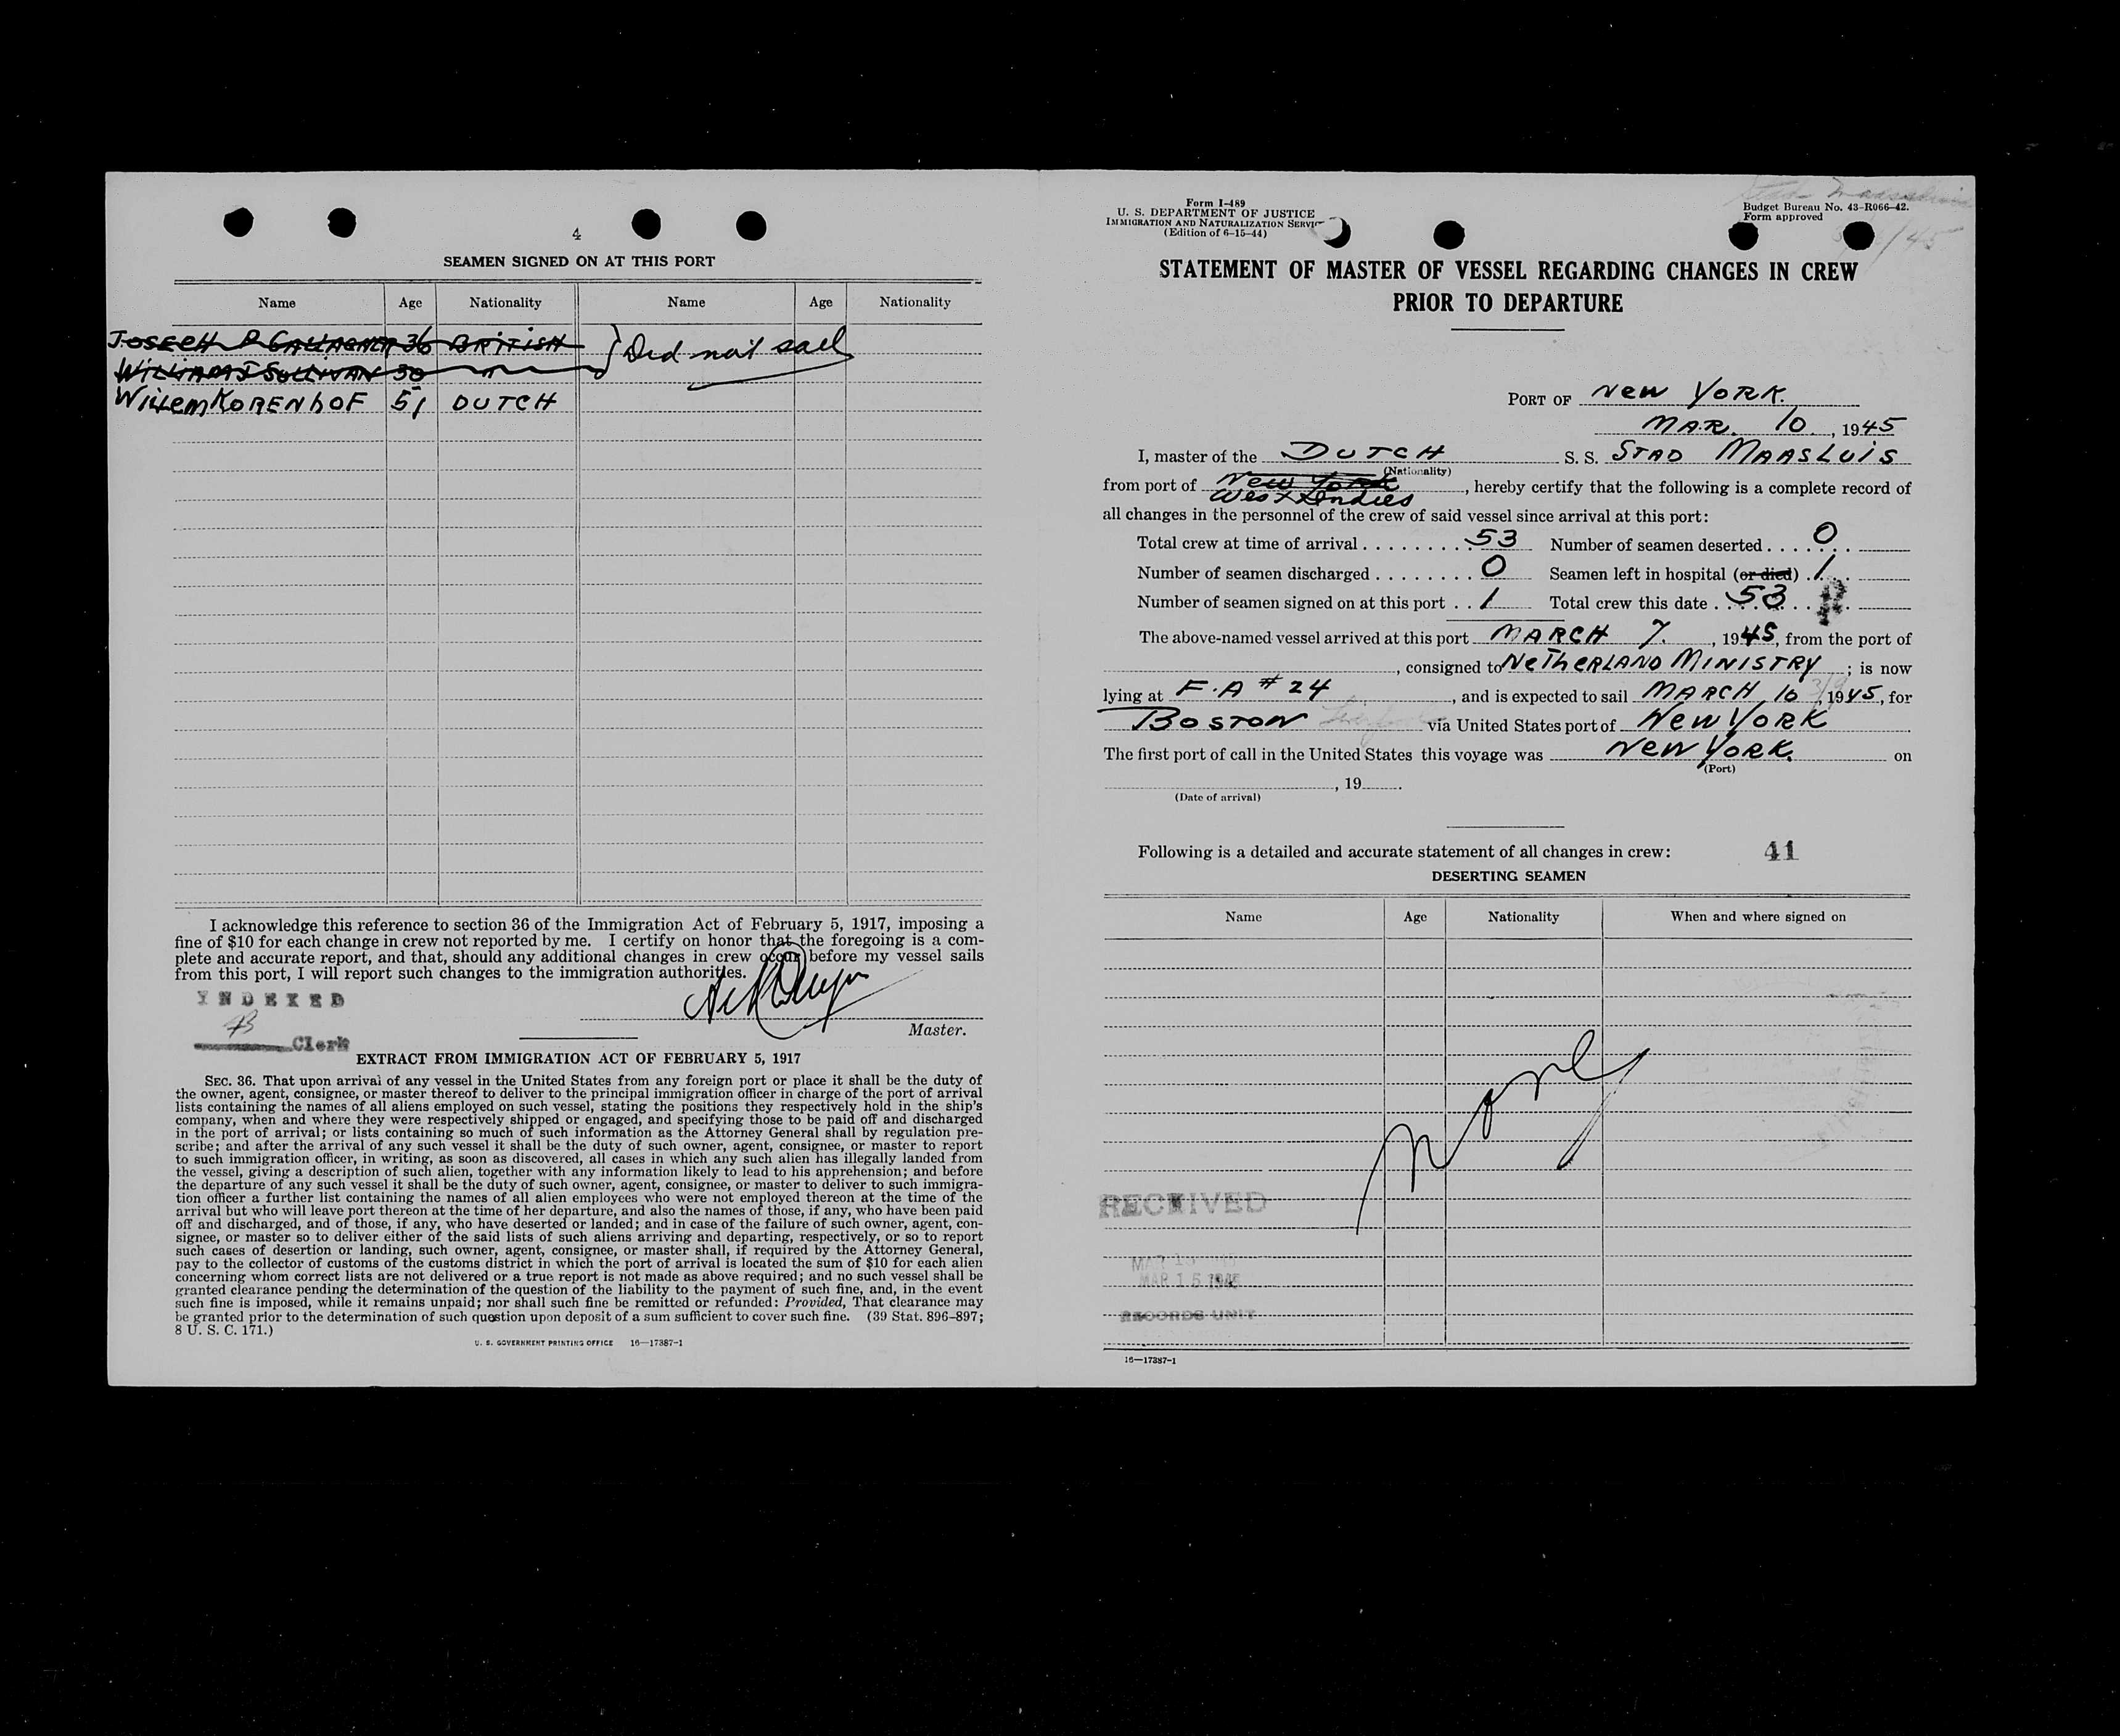 4
SEAMEN SIGNED ON AT THIS PORT
Name Age Nationality Name Age Nationality
JOSEPH P GALLAGHER 36 BRITISH } Did not sail
WILLIAM J SULLIVAN 30 "
Willem KORENHOF 51 DUTCH
I acknowledge this reference to section 36 of the Immigration Act of February 5, 1917, imposing a
fine of $10 for each change in crew not reported by me. I certify on honor that the foregoing is a com-
plete and accurate report, and that, should any additional changes in crew occur before my vessel sails
from this port, I will report such changes to the immigration authorities.
INDEXED
Clerk
Master.
EXTRACT FROM IMMIGRATION ACT OF FEBRUARY 5, 1917
SEC. 36. That upon arrival of any vessel in the United States from any foreign port or place it shall be the duty of
the owner, agent, consignee, or master thereof to deliver to the principal immigration officer in charge of the port of arrival
lists containing the names of all aliens employed on such vessel, stating the positions they respectively hold in the ship's
company, when and where they were respectively shipped or engaged, and specifying those to be paid off and discharged
in the port of arrival; or lists containing so much of such information as the Attorney General shall by regulation pre-
scribe; and after the arrival of any such vessel it shall be the duty of such owner, agent, consignee, or master to report
to such immigration officer, in writing, as soon as discovered, all cases in which any such alien has illegally landed from
the vessel, giving a description of such alien, together with any information likely to lead to his apprehension; and before
the departure of any such vessel it shall be the duty of such owner, agent, consignee, or master to deliver to such immigra-
tion officer a further list containing the names of all alien employees who were not employed thereon at the time of the
arrival but who will leave port thereon at the time of her departure, and also the names of those, if any, who have been paid
off and discharged, and of those, if any, who have deserted or landed; and in case of the failure of such owner, agent, con-
signee, or master so to deliver either of the said lists of such aliens arriving and departing, respectively, or so to report
such cases of desertion or landing, such owner, agent, consignee, or master shall, if required by the Attorney General,
pay to the collector of customs of the customs district in which the port of arrival is located the sum of $10 for each alien
concerning whom correct lists are not delivered or a true report is not made as above required; and no such vessel shall be
granted clearance pending the determination of the question of the liability to the payment of such fine, and, in the event
such fine is imposed, while it remains unpaid; nor shall such fine be remitted or refunded: Provided, That clearance may
be granted prior to the determination of such question upon deposit of a sum sufficient to cover such fine. (39 Stat. 896-897;
8 U. S. C. 171.)
U. S. GOVERNMENT PRINTING OFFICE 16—17387-1
Form I-489
U. S. DEPARTMENT OF JUSTICE
IMMIGRATION AND NATURALIZATION SERVI
(Edition of 6-15-44)
Budget Bureau No. 43-R066-42.
Form approved
/45
STATEMENT OF MASTER OF VESSEL REGARDING CHANGES IN CREW
PRIOR TO DEPARTURE
PORT OF New YORK.
MAR. 10, 1945
I, master of the DUTCH S. S. STAD MAASLUIS
(Nationality)
from port of New York West Indies, hereby certify that the following is a complete record of
all changes in the personnel of the crew of said vessel since arrival at this port:
Total crew at time of arrival 53 Number of seamen deserted 0
Number of seamen discharged 0 Seamen left in hospital (or died) 1
Number of seamen signed on at this port 1 Total crew this date 53
The above-named vessel arrived at this port MARCH 7, 1945, from the port of
, consigned to NETHERLAND MINISTRY; is now
lying at F.A #24, and is expected to sail MARCH 10, 1945, for
BOSTON via United States port of New YORK
The first port of call in the United States this voyage was New YORK. on
(Port)
, 19 .
(Date of arrival)
Following is a detailed and accurate statement of all changes in crew: 41
DESERTING SEAMEN
Name Age Nationality When and where signed on
none
RECEIVED
MAR 15
MAR 15 1945
RECORDS UNIT
16—17387-1